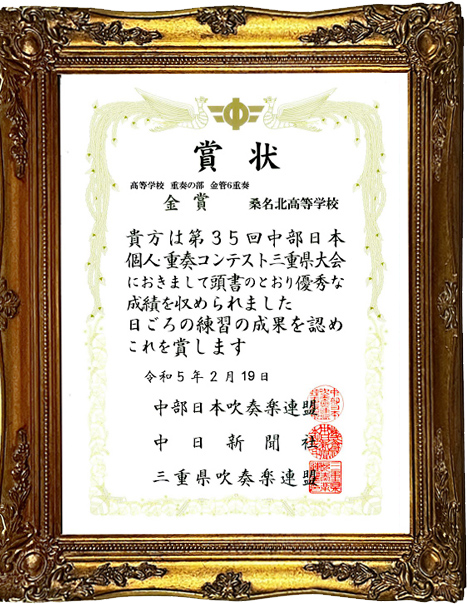 賞状
高等学校 重奏の部 金管6重奏
金賞 桑名北高等学校
貴方は第35回中部日本
個人・重奏コンテスト三重県大会
におきまして頭書のとおり優秀な
成績を収められました
日ごろの練習の成果を認め
これを賞します
令和5年2月19日
中部日本吹奏楽連盟
中日新聞社
三重県吹奏楽連盟